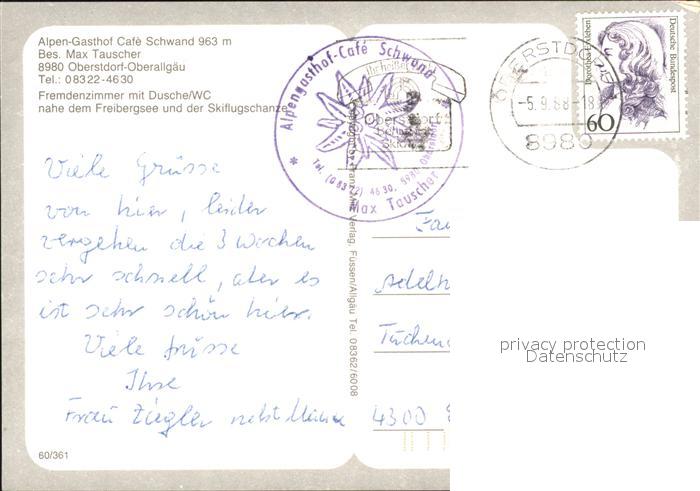 Alpen-Gasthof Cafè Schwand 963 m
Bes. Max Tauscher
8980 Oberstdorf-Oberallgäu
Tel.: 08322-4630
Fremdenzimmer mit Dusche/WC
nahe dem Freibergsee und der Skiflugschanze
Alpengasthof-Café Schwand
Tel. (08322) 4630, 8980 Oberstdorf
Max Tauscher
Oberstdorf
OBERSTDORF
-5.9.88-18
8980
Dorothea Erxleben
Deutsche Bundespost
60
Viele Grüsse
von hier, leider
vergehen die 3 Wochen
sehr schnell, aber es
ist sehr schön hier.
Viele Grüsse
Ihre
Frau Ziegler nebst
Verlag, Füssen/Allgäu Tel. 08362/6008
Fa
Adelh
Tuchen
4300
60/361
privacy protection
Datenschutz